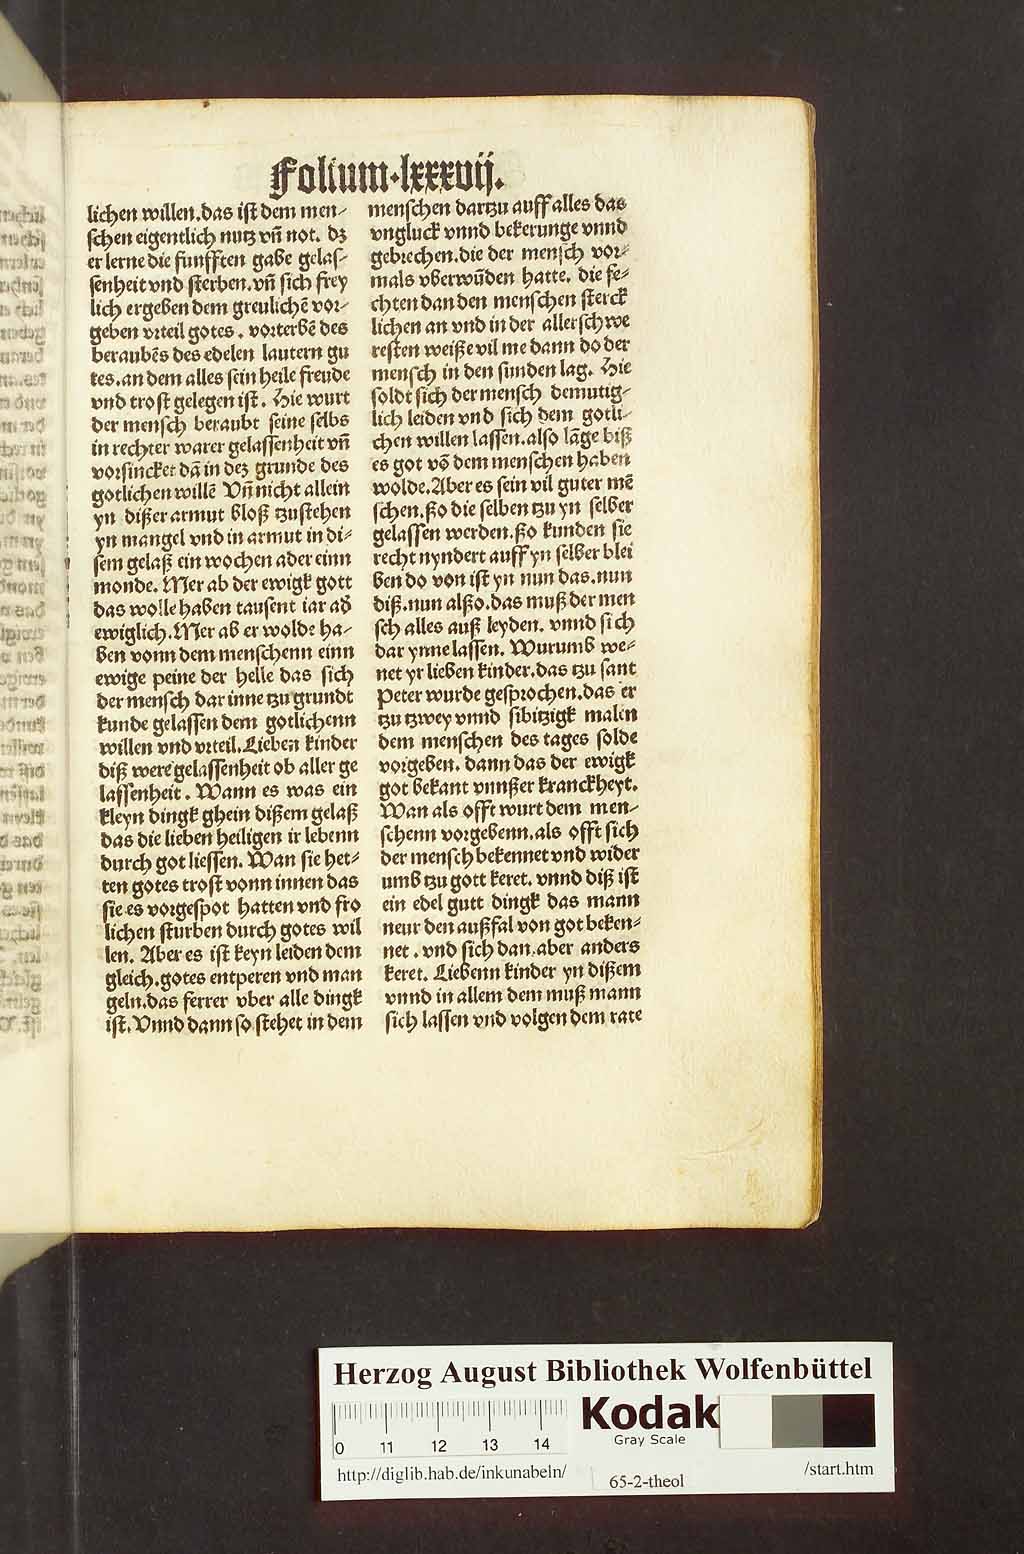 Folium·lxxxvij.
lichen willen.das ist dem men⸗
schen eigentlich nutz vn̄ not. dz
er lerne die funfften gabe gelas⸗
senheit vnd sterben.vn̄ sich frey
lich ergeben dem greulichē vor⸗
geben vrteil gotes. vorterbē des
beraubēs des edelen lautern gu
tes.an dem alles sein heile freude
vnd trost gelegen ist. Hie wurt
der mensch beraubt seine selbs
in rechter warer gelassenheit vn̄
vorsincket dā in dez grunde des
gotlichen willē Vn̄ nicht allein
yn dißer armut bloß tzustehen
yn mangel vnd in armut in di⸗
sem gelaß ein wochen ader einn
monde. Mer ab der ewigk gott
das wolle haben tausent iar ad̄
ewiglich.Mer ab er wolde ha⸗
ben vonn dem menschenn einn
ewige peine der helle das sich
der mensch dar inne tzu grundt
kunde gelassen dem gotlichenn
willen vnd vrteil.Lieben kinder
diß were gelassenheit ob aller ge
lassenheit. Wann es was ein
kleyn dingk ghein dißem gelaß
das die lieben heiligen ir lebenn
durch got liessen. Wan sie het⸗
ten gotes trost vonn innen das
sie es vorgespot hatten vnd fro
lichen sturben durch gotes wil
len. Aber es ist keyn leiden dem
gleich.gotes entperen vnd man
geln.das ferrer vber alle dingk
ist.Vnnd dann so stehet in dem
menschen dartzu auff alles das
vngluck vnnd bekerunge vnnd
gebrechen.die der mensch vor⸗
mals vberwūden hatte. die fe⸗
chten dan den menschen sterck
lichen an vnd in der allerschwe
resten weiße vil me dann do der
mensch in den sunden lag. Hie
soldt sich der mensch demutig⸗
lich leiden vnd sich dem gotli⸗
chen willen lassen.also lāge biß
es got vō dem menschen haben
wolde.Aber es sein vil guter mē
schen.ßo die selben tzu yn selber
gelassen werden.ßo kunden sie
recht nyndert auff yn selber blei
ben do von ist yn nun das.nun
diß.nun alßo.das muß der men
sch alles auß leyden. vnnd sich
dar ynne lassen. Wurumb we⸗
net yr lieben kinder.das tzu sant
Peter wurde gesprochen.das er
tzu tzwey vnnd sibitzigk malen
dem menschen des tages solde
vorgeben. dann das der ewigk
got bekant vnnßer kranckheyt.
Wan als offt wurt dem men⸗
schenn vorgebenn.als offt sich
der mensch bekennet vnd wider
umb tzu gott keret. vnnd diß ist
ein edel gutt dingk das mann
neur den außfal von got beken⸗
net. vnd sich dan.aber anders
keret. Liebenn kinder yn dißem
vnnd in allem dem muß mann
sich lassen vnd volgen dem rate
Herzog August Bibliothek Wolfenbüttel
Kodak
Gray Scale
0 11 12 13 14
http://diglib.hab.de/inkunabeln/
65-2-theol
/start.htm